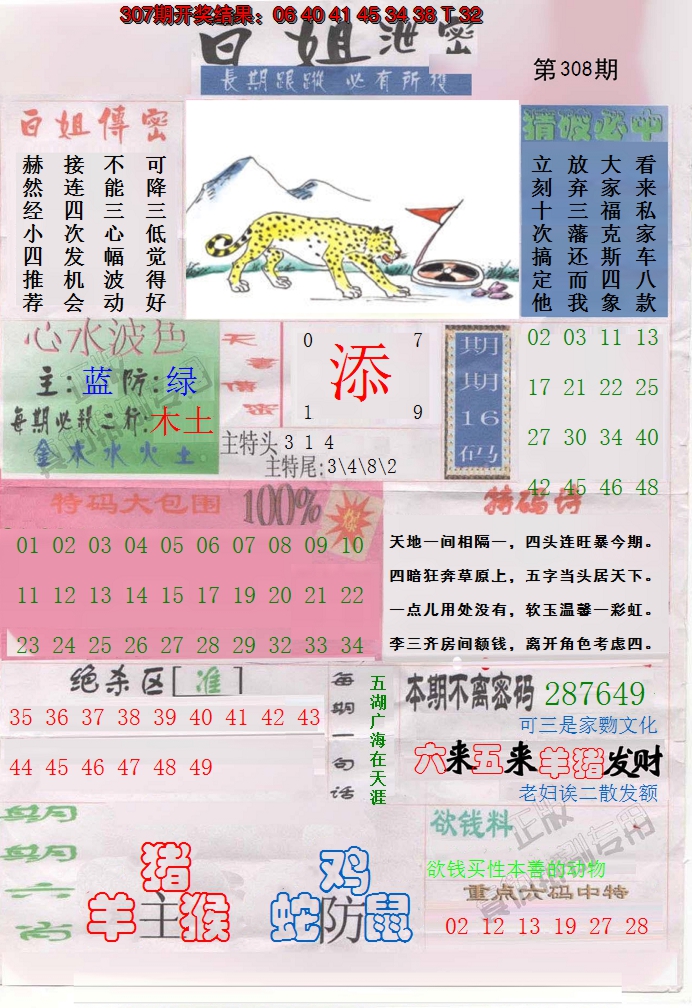 307期开奖结果：06 40 41 45 34 38 T 32
白姐泄密
第308期
長期跟蹤 必有所獲
白姐傳密
可降三低觉得好
不能三心幅波动
接连四次发机会
赫然经小四推荐
猜波必中
看来私家车八款
大家福克斯四象
放弃三落还而我
立刻十次搞定他
心水波色
主:蓝防:绿
每期必殺二行:木土
金木水火土
0 7
添
1 9
主特头314
主特尾:3\4\8\2
期期16码
02 03 11 13
17 21 22 25
27 30 34 40
42 45 46 48
特码大包围 100%
01 02 03 04 05 06 07 08 09 10
11 12 13 14 15 17 19 20 21 22
23 24 25 26 27 28 29 32 33 34
特码诗
天地一间相隔一，四头连旺暴今期。
四暗狂奔草原上，五字当头居天下。
一点儿用处没有，软玉温馨一彩虹。
李三齐房间额钱，离开角色考虑四。
绝杀区[准]
35 36 37 38 39 40 41 42 43
44 45 46 47 48 49
每期一句话
五湖广海在天涯
本期不离密码 287649
可三是家覅文化
六来五来羊猪发财
老妇诶二散发额
每期六肖
猪
羊主猴
鸡
蛇防鼠
欲钱料
欲钱买性本善的动物
重点六码中特
02 12 13 19 27 28